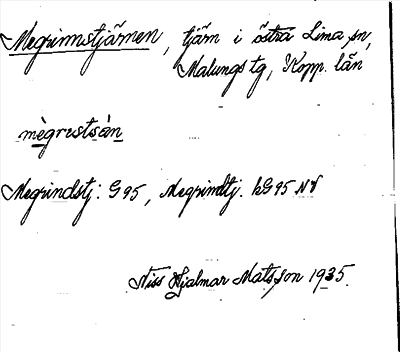 Megrinnstjärnen, tjärn i östra Lima sn,
Malungs tg, Kopp. län
mègrestsàn
Megrindstj: G95, Megrindtj. hG95 NV
Niss Hjalmar Matsson 1935.